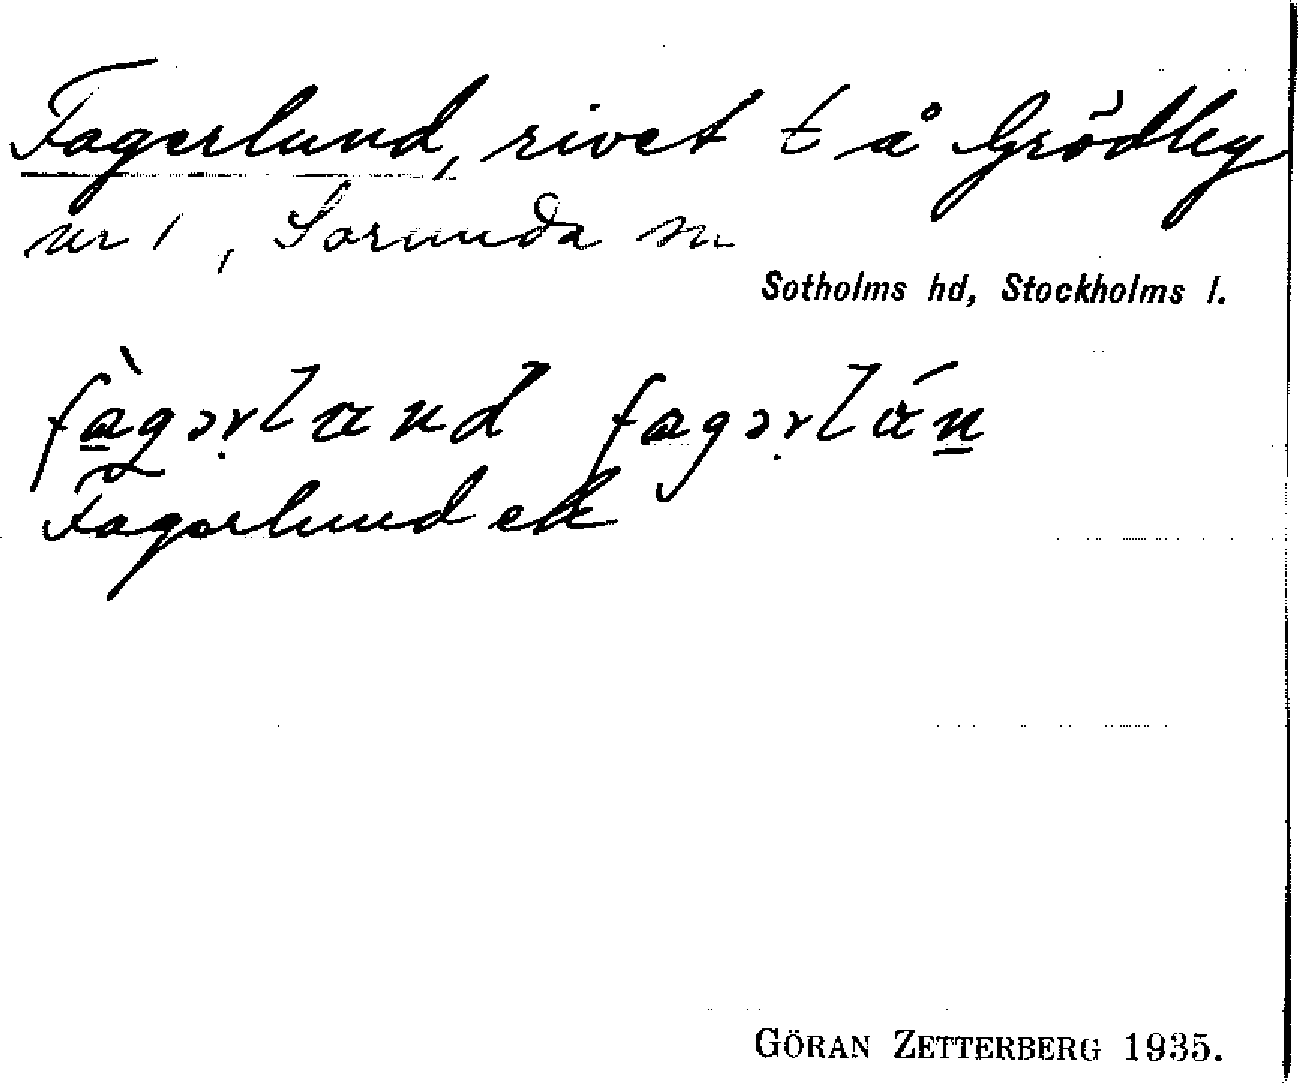 Fagerlund, rivet t å Grödby
nr 1, Sorunda sn
Sotholms hd, Stockholms l.
fàgərlαnd fagərlάn
Fagerlund ek
GÖRAN ZETTERBERG 1935.